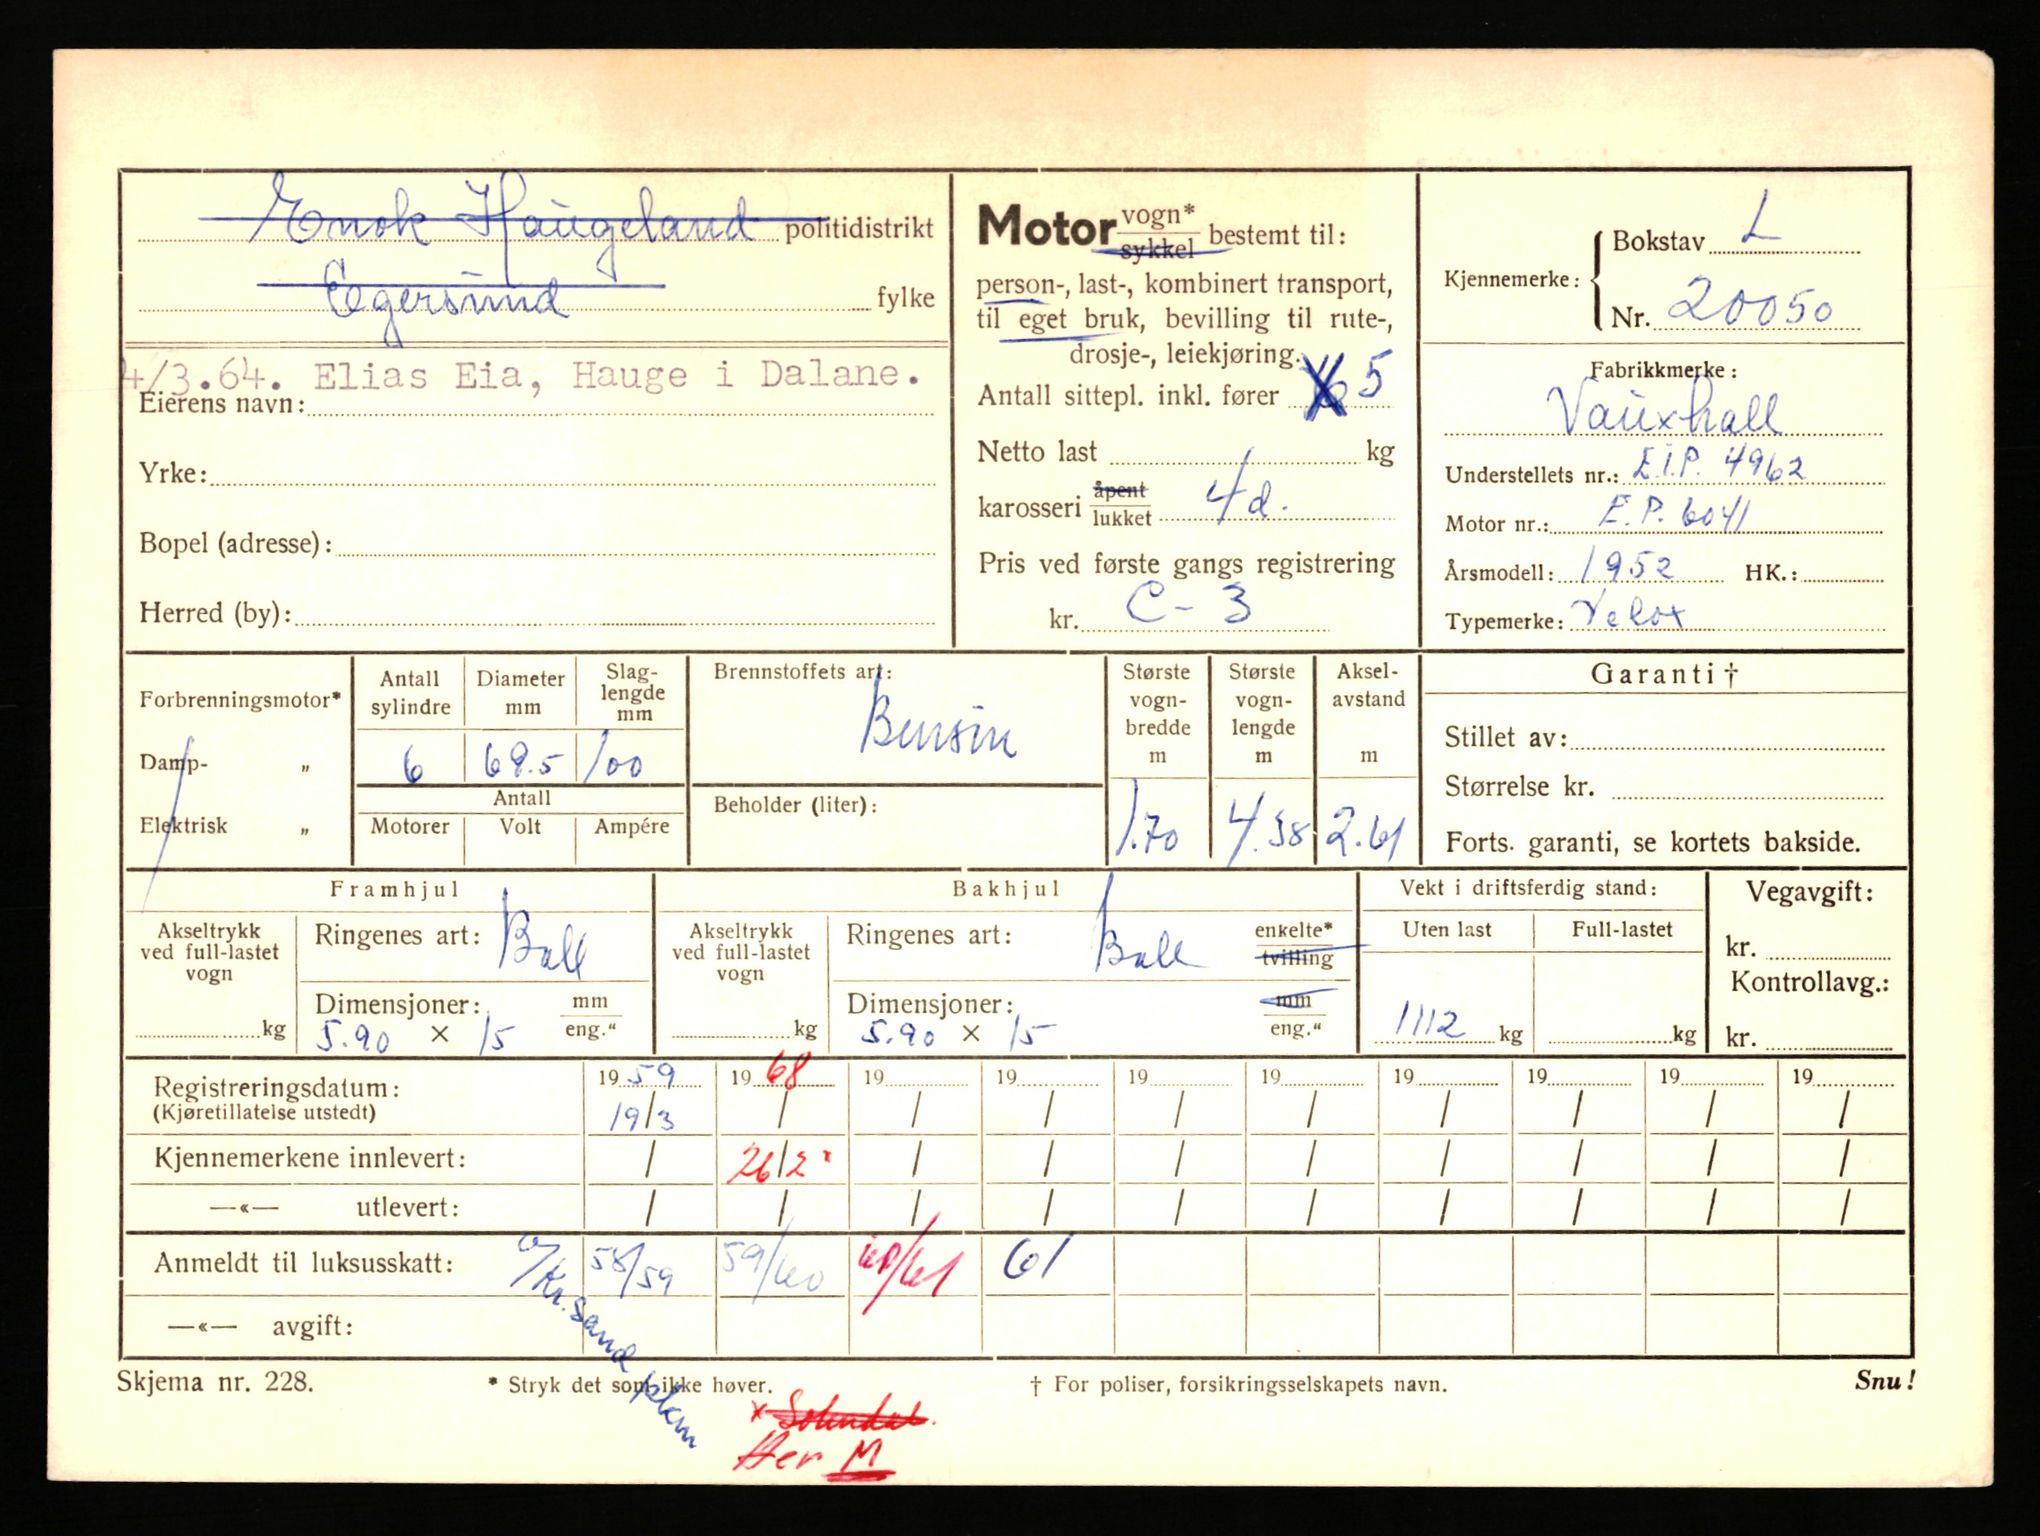 Enok Haugeland politidistrikt
Egersund fylke
4/3.64. Elias Eia, Hauge i Dalane.
Eierens navn:
Yrke:
Bopel (adresse):
Herred (by):
Motor vogn* sykkel bestemt til:
person-, last-, kombinert transport,
til eget bruk, bevilling til rute-,
drosje-, leiekjøring.
Antall sittepl. inkl. fører 5
Netto last kg
karosseri åpent lukket 4 d.
Pris ved første gangs registrering
kr. C-3
Kjennemerke: Bokstav L
Nr. 20050
Fabrikkmerke:
Vauxhall
Understellets nr.: E.I.P. 4962
Motor nr.: E.P. 6041
Årsmodell: 1952 HK.:
Typemerke: Velox
Forbrenningsmotor*
Damp- „
Elektrisk „
Antall sylindre
6
Diameter mm
69.5
Slag-lengde mm
100
Antall
Motorer Volt Ampére
Brennstoffets art:
Bensin
Beholder (liter):
Største vogn-bredde m
1.70
Største vogn-lengde m
4.38
Aksel-avstand m
2.61
Garanti †
Stillet av:
Størrelse kr.
Forts. garanti, se kortets bakside.
Framhjul
Akseltrykk ved full-lastet vogn
kg
Ringenes art: Ball
Dimensjoner: mm eng."
5.90 × 15
Bakhjul
Akseltrykk ved full-lastet vogn
kg
Ringenes art: Ball enkelte* tvilling
Dimensjoner: mm eng."
5.90 × 15
Vekt i driftsferdig stand:
Uten last Full-lastet
1112 kg kg
Vegavgift:
kr.
Kontrollavg.:
kr.
Registreringsdatum: 1959 1968 19 19 19 19 19 19 19 19
(Kjøretillatelse utstedt) 19/3 / / / / / / / / /
Kjennemerkene innlevert: / 26/2 x / / / / / / / /
—«— utlevert: / / / / / / / / / /
Anmeldt til luksusskatt: 58/59 59/60 60/61 61
Kr.sand pkm
—«— avgift:
Skjema nr. 228. * Stryk det som ikke høver. † For poliser, forsikringsselskapets navn. Snu!
x Solundal.
Her M